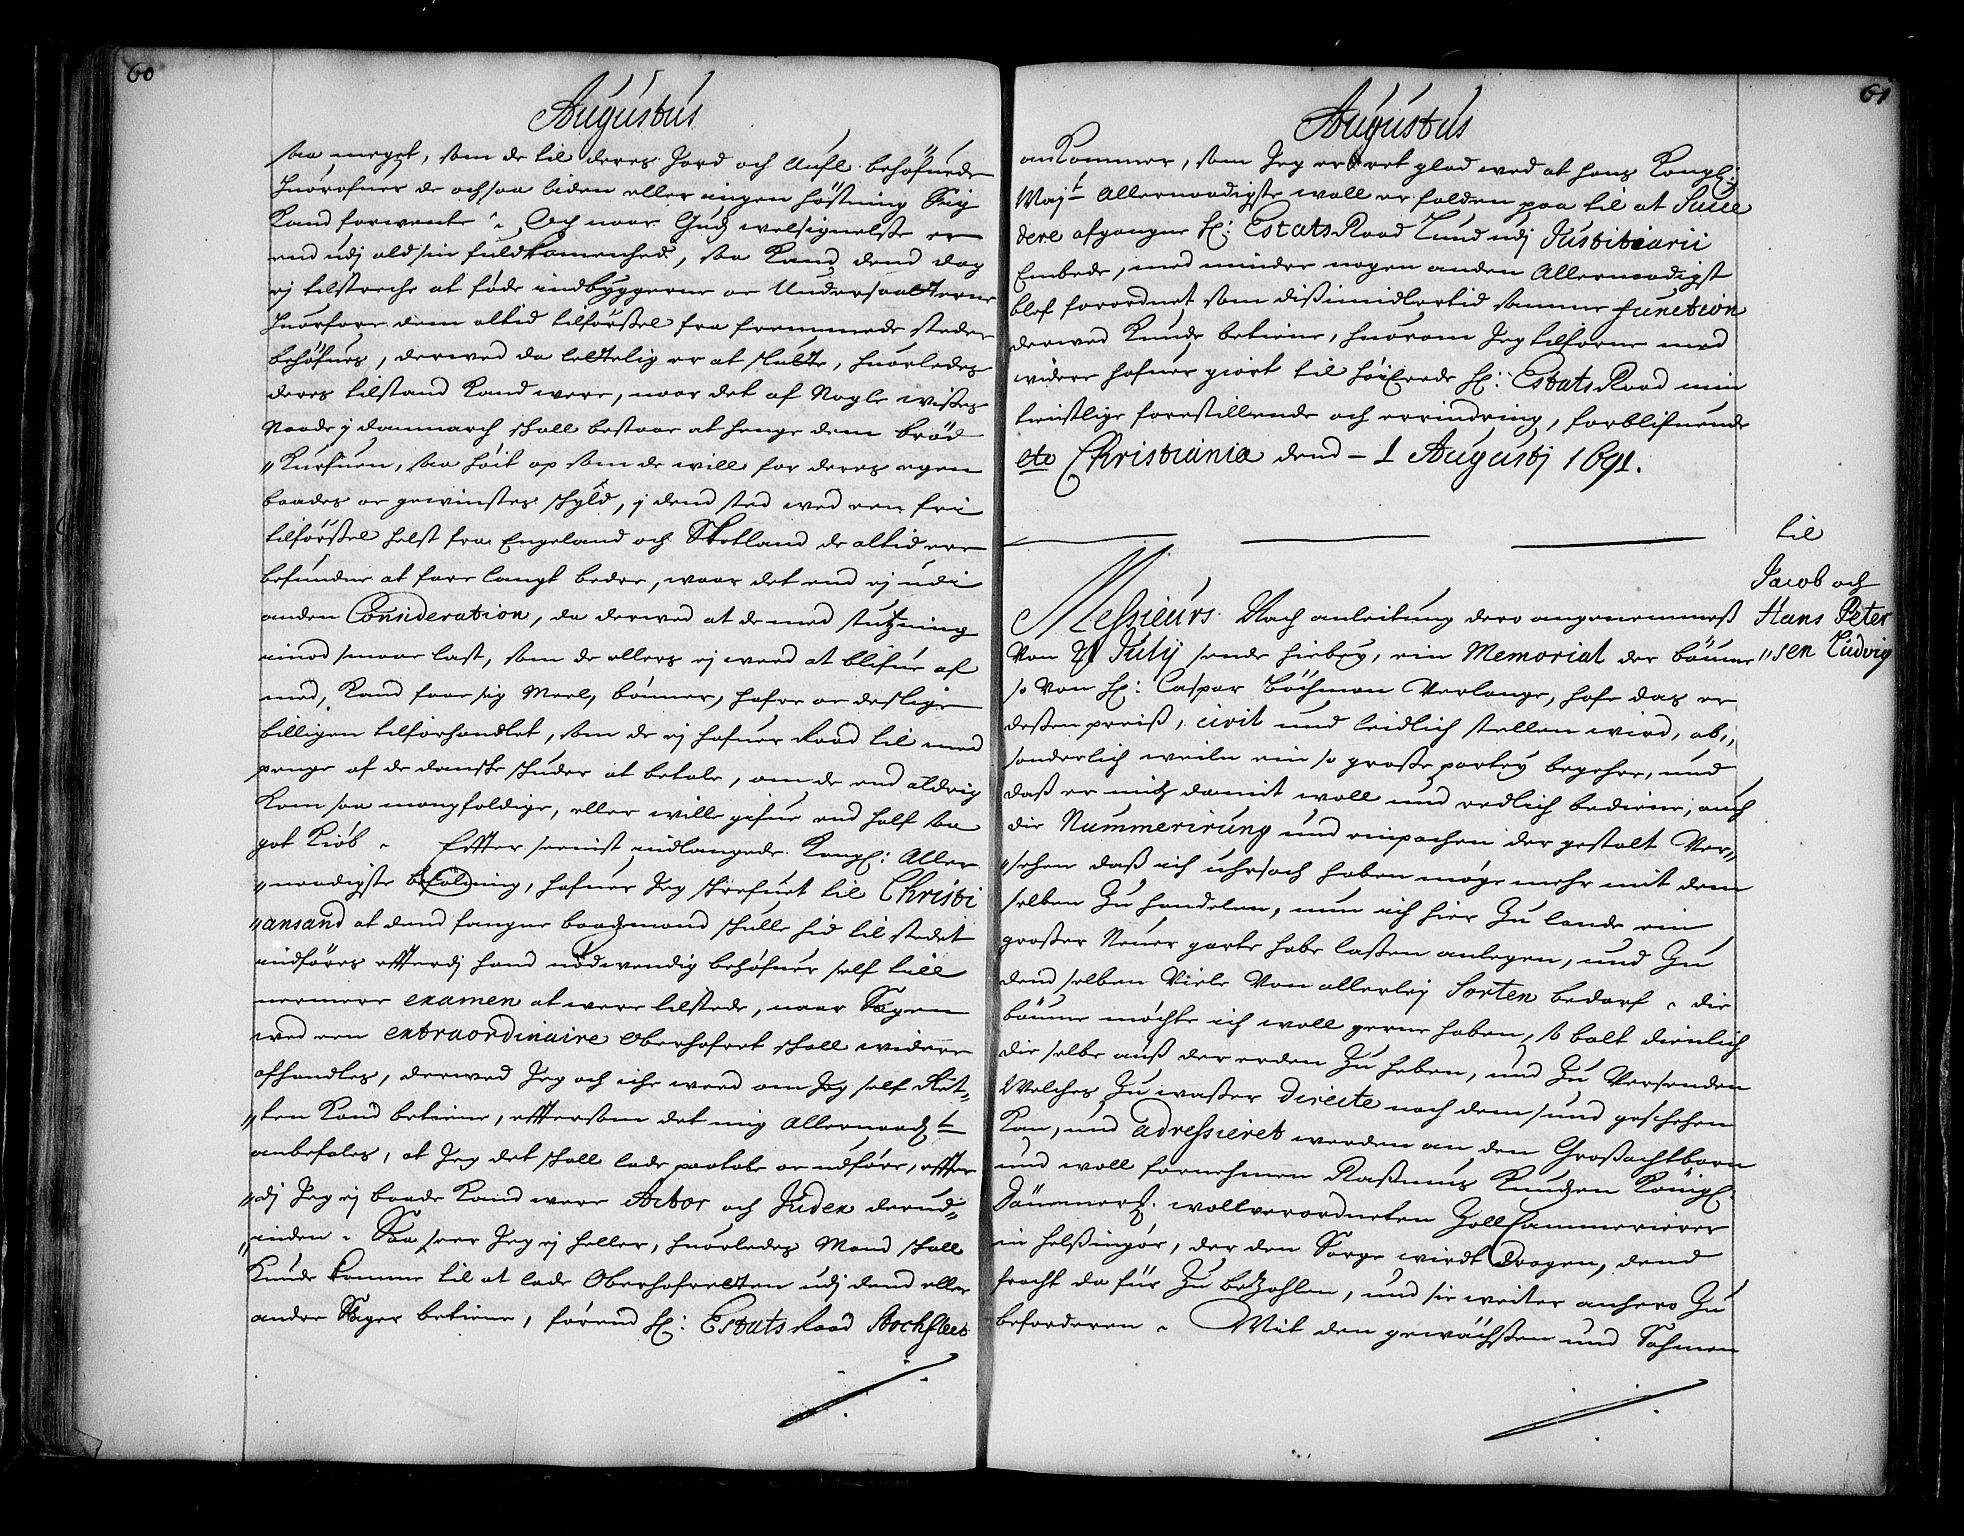 60
Augustus
saa meget, som de til deres Jord och Aufl behøfuede
huorofuer de ochsaa liden eller ingen høstning Sig
Kand forvente. Och naar Guds welsignelse er
end udj ald sin fuldkomenhed, saa Kand dend dog
ej tilstreche at føde indbyggerne oc Undersaatterne
huorfore dem altid tilførssel fra fremmede steder
behøfues, derwed da letteligen er at slutte, huorledes
deres tilstand Kand were, naar det af Nogle wisses
Naade j danmarch skall bestaae at henge dem brød
"Kurfuen, saa høit op som de will for deres egen
baades oc gewinstes skyld, j dend sted wed een fri
tilførssel helst fra Engeland och Skotland de altid ere
befunden at fare langt bedre, waar det end ej udi
anden Consideration, da derwed at de med stuffning
imod smaae last, som de ellers ej weed at blifue af
med, Kand faae sig Meel, bønner, hafre oc deslige
billigen tilforhandlet, som de ej hafuer Raad til med
penge af de danske skuder at betale, om de end aldrig
Kom saa mangfoldige, eller wille gifue end half saa
got Kiøb. Efter seeniste indlangede Kongl: Aller
"naadigste befalning, hafuer Jeg skrefuet til Christi
"ansand at dend fangne baadzmand skulle hid til stedet
indføres efterdj hand nødwendig behøfuer self till
nermere examen at were tilstede, naar Sagen
wed een extraordinaire Oberhofret skall widere
afhandles, derwed Jeg och iche weed om Jeg self Ret„
"ten Kand betiene, eftersom det mig Allernaadst
anbefales, at Jeg det skall lade paatale oc udføre, efter
"dj Jeg ej baade Kand were Actor och Judex derud„
"inden. Saa seer Jeg ej heller, huorledes Mand skall
Kunde komme til at lade Oberhofretten udj dend eller
andre Sager betiene, førend H: Estats Raad Stockfleet
61
Augustus
ankommer, som Jeg er ret glad wed at hans Kongl:
Mayt Allernaadigste woll er falden paa til at Succe
dere afgangne H: Estats Raad Lund udj Justitiarii
Embede, med mindre nogen anden Allernaadigst
blef forordnet som dissimidlertid samme function
derwed Kunde betiene, huorom Jeg tilforne med
widere hafuer giort til høiEdle H: Estats Raad min
tienstlige forestillende och errindring, forblifuende
etc Christiania dend – 1 Augustj 1691.
til
Jacob och
Hans Peter
"sen Ludvig
Messieurs. Nach anleitung dero angenemmess
Von 21 Julij sende hiebey, ein Memorial der bäume
so Von H: Caspar Böchman Verlange, hofe das er
dessen preiss, civil und leidlich stellen wird, ab„
sonderlich weiln ein so grosse partey begehre, und
dass er mich damit woll und redlich bediene, auch
die Nummerirung und einpachen der gestalt Ver„
"sehen dass ich uhrsach haben möge mehr mit dem
selben Zu handelen, nun ich hier Zu lande ein
grosser Neuer garte habe lassen anlegen, und Zu
dend selben Viele Von allerley Sorten bedarf. die
bäume möchte ich woll gerne haben, so balt dienlich
die selbe auss der erden Zu heben, und Zu Versenden
Welches Zu wasser directe nach dem sund geschehen
Kan, und adressieret werden an den Grossachtbarn
und woll fornehmen Rassmus Knudsen Königl
Dännemark. wollverordneten Zoll Cammerierer
in helssingör, der den Sorge wirdt dragen, dend
fracht da für Zu beZahlen, und sie weiter anhero Zu
beforderen. Mit den gewächssen und Sahmen